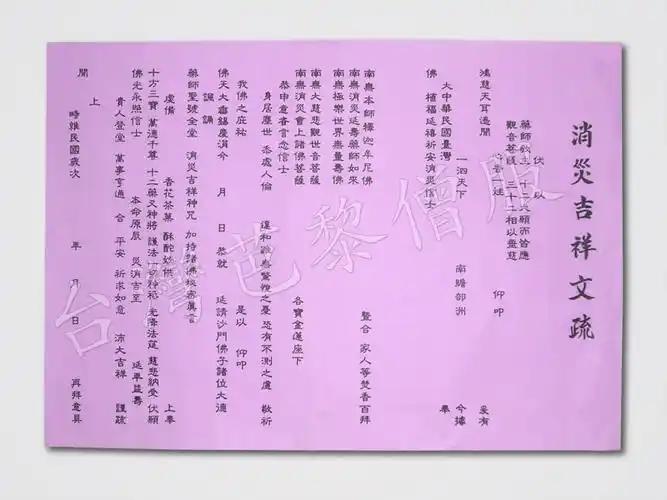 消災吉祥文疏
伏以
藥師啟主 十二大願而皆應
觀音菩薩 三十二相以靈慈 仰叩
鴻慈天耳遙聞 爰有
一泗天下 南瞻部洲 今據
大中華民國臺灣
佛 植福延禧祈安消災信士 奉
暨合 家人等焚香百拜
南無本師釋迦牟尼佛
南無消災延壽藥師如來
南無極樂世界無量壽佛
南無大慈悲觀世音菩薩
南無消災會上諸佛菩薩
各寶金蓮座下
恭申意者言念信士
身居塵世 忝處人倫 違和 驚惶之憂恐有不測之虞 敬祈
我佛之庇祐 是以 仰叩
佛天大垂錫慶涓今 月 日 恭就 延請沙門佛子諸位大德
諷誦
藥師聖號全堂 消災吉祥神咒 加持諸佛 真言
虔備 香花茶菓 酥酡妙供 上奉
十方三寶 萬德千尊 十二藥叉神將 護法 神祇 光降法筵 慈悲納受 伏願
佛光永照信士 本命原辰 災消吉至 延年益壽
貴人登堂 萬事亨通 合 平安 祈求如意 沛大吉祥 謹疏
上
聞
時維民國歲次 年 月 日 再拜意具
台灣芭黎僧服